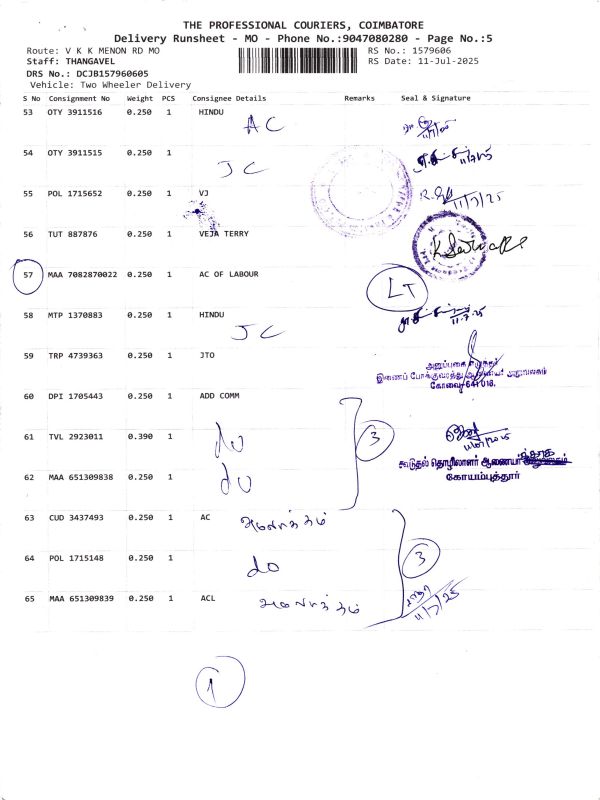 THE PROFESSIONAL COURIERS, COIMBATORE
Delivery Runsheet - MO - Phone No.:9047080280 - Page No.:5
Route: V K K MENON RD MO RS No.: 1579606
Staff: THANGAVEL RS Date: 11-Jul-2025
DRS No.: DCJB157960605
Vehicle: Two Wheeler Delivery
S No Consignment No Weight PCS Consignee Details Remarks Seal & Signature
53 OTY 3911516 0.250 1 HINDU
AC 11/7/25
54 OTY 3911515 0.250 1
JC 11/7/25
55 POL 1715652 0.250 1 VJ
11/7/25
56 TUT 887876 0.250 1 VEJA TERRY
57 MAA 7082870022 0.250 1 AC OF LABOUR
LT
58 MTP 1370883 0.250 1 HINDU
JC 11.7.25
59 TRP 4739363 0.250 1 JTO
இணைப் போக்குவரத்து ஆணையர் அலுவலகம்
கோவை-641 018.
60 DPI 1705443 0.250 1 ADD COMM
61 TVL 2923011 0.390 1
do 3 11/07/2025
கூடுதல் தொழிலாளர் ஆணையர்
கோயம்புத்தூர்
62 MAA 651309838 0.250 1
do
63 CUD 3437493 0.250 1 AC அமலாக்கம்
64 POL 1715148 0.250 1
do 3
65 MAA 651309839 0.250 1 ACL அமலாக்கம் 11/7/25
1